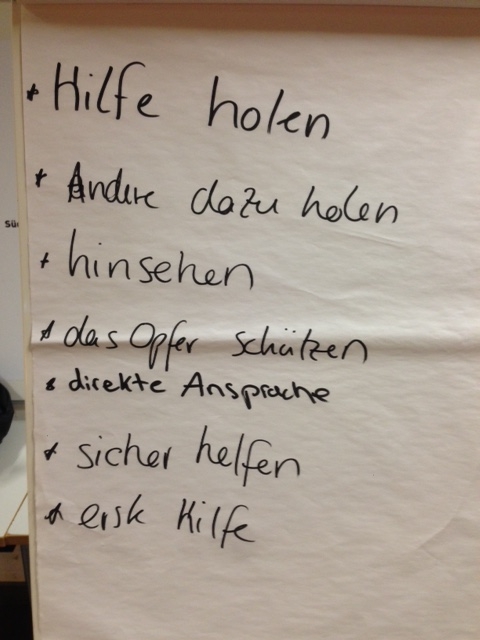 * Hilfe holen
* Andere dazu holen
* hinsehen
* das Opfer schützen
* direkte Ansprache
* sicher helfen
* erste Hilfe